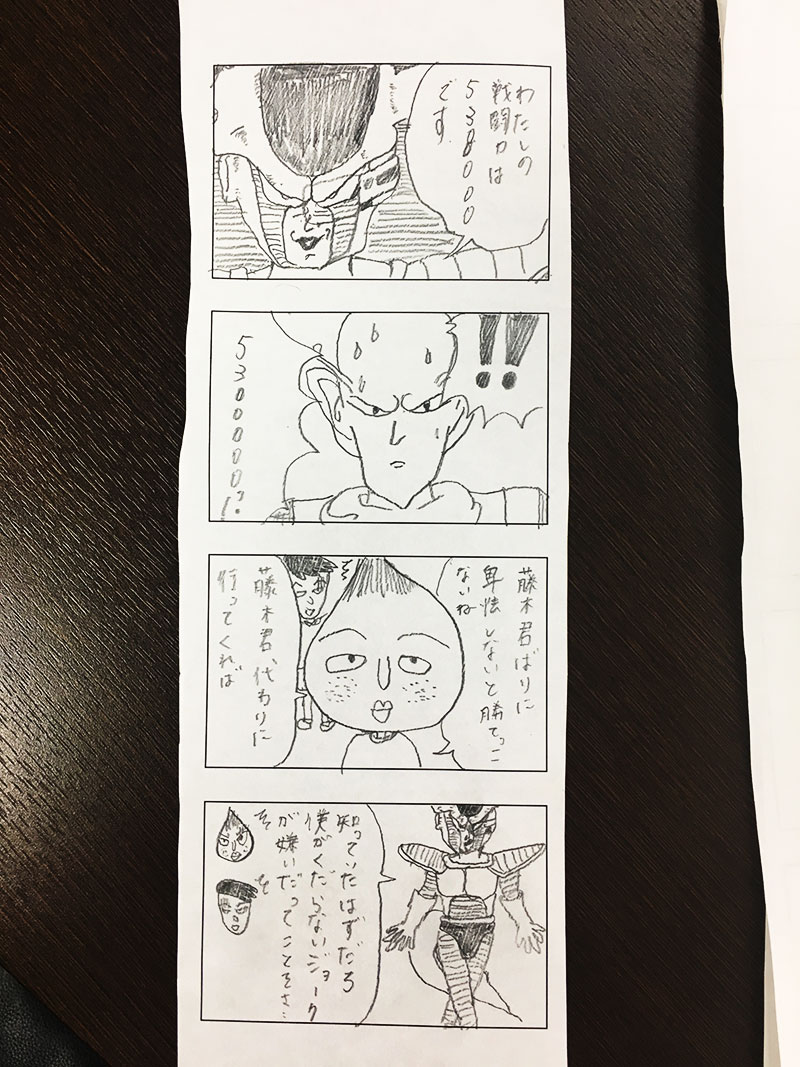 わたしの
戦闘力は
538000
です.
!!
53000000?!
藤木君ばりに
卑怯しないと勝てっこ
ないね
藤木君、代わりに
行ってくれば
知っていたはずだろ
僕がくだらないジョーク
が嫌いだってことをさ…